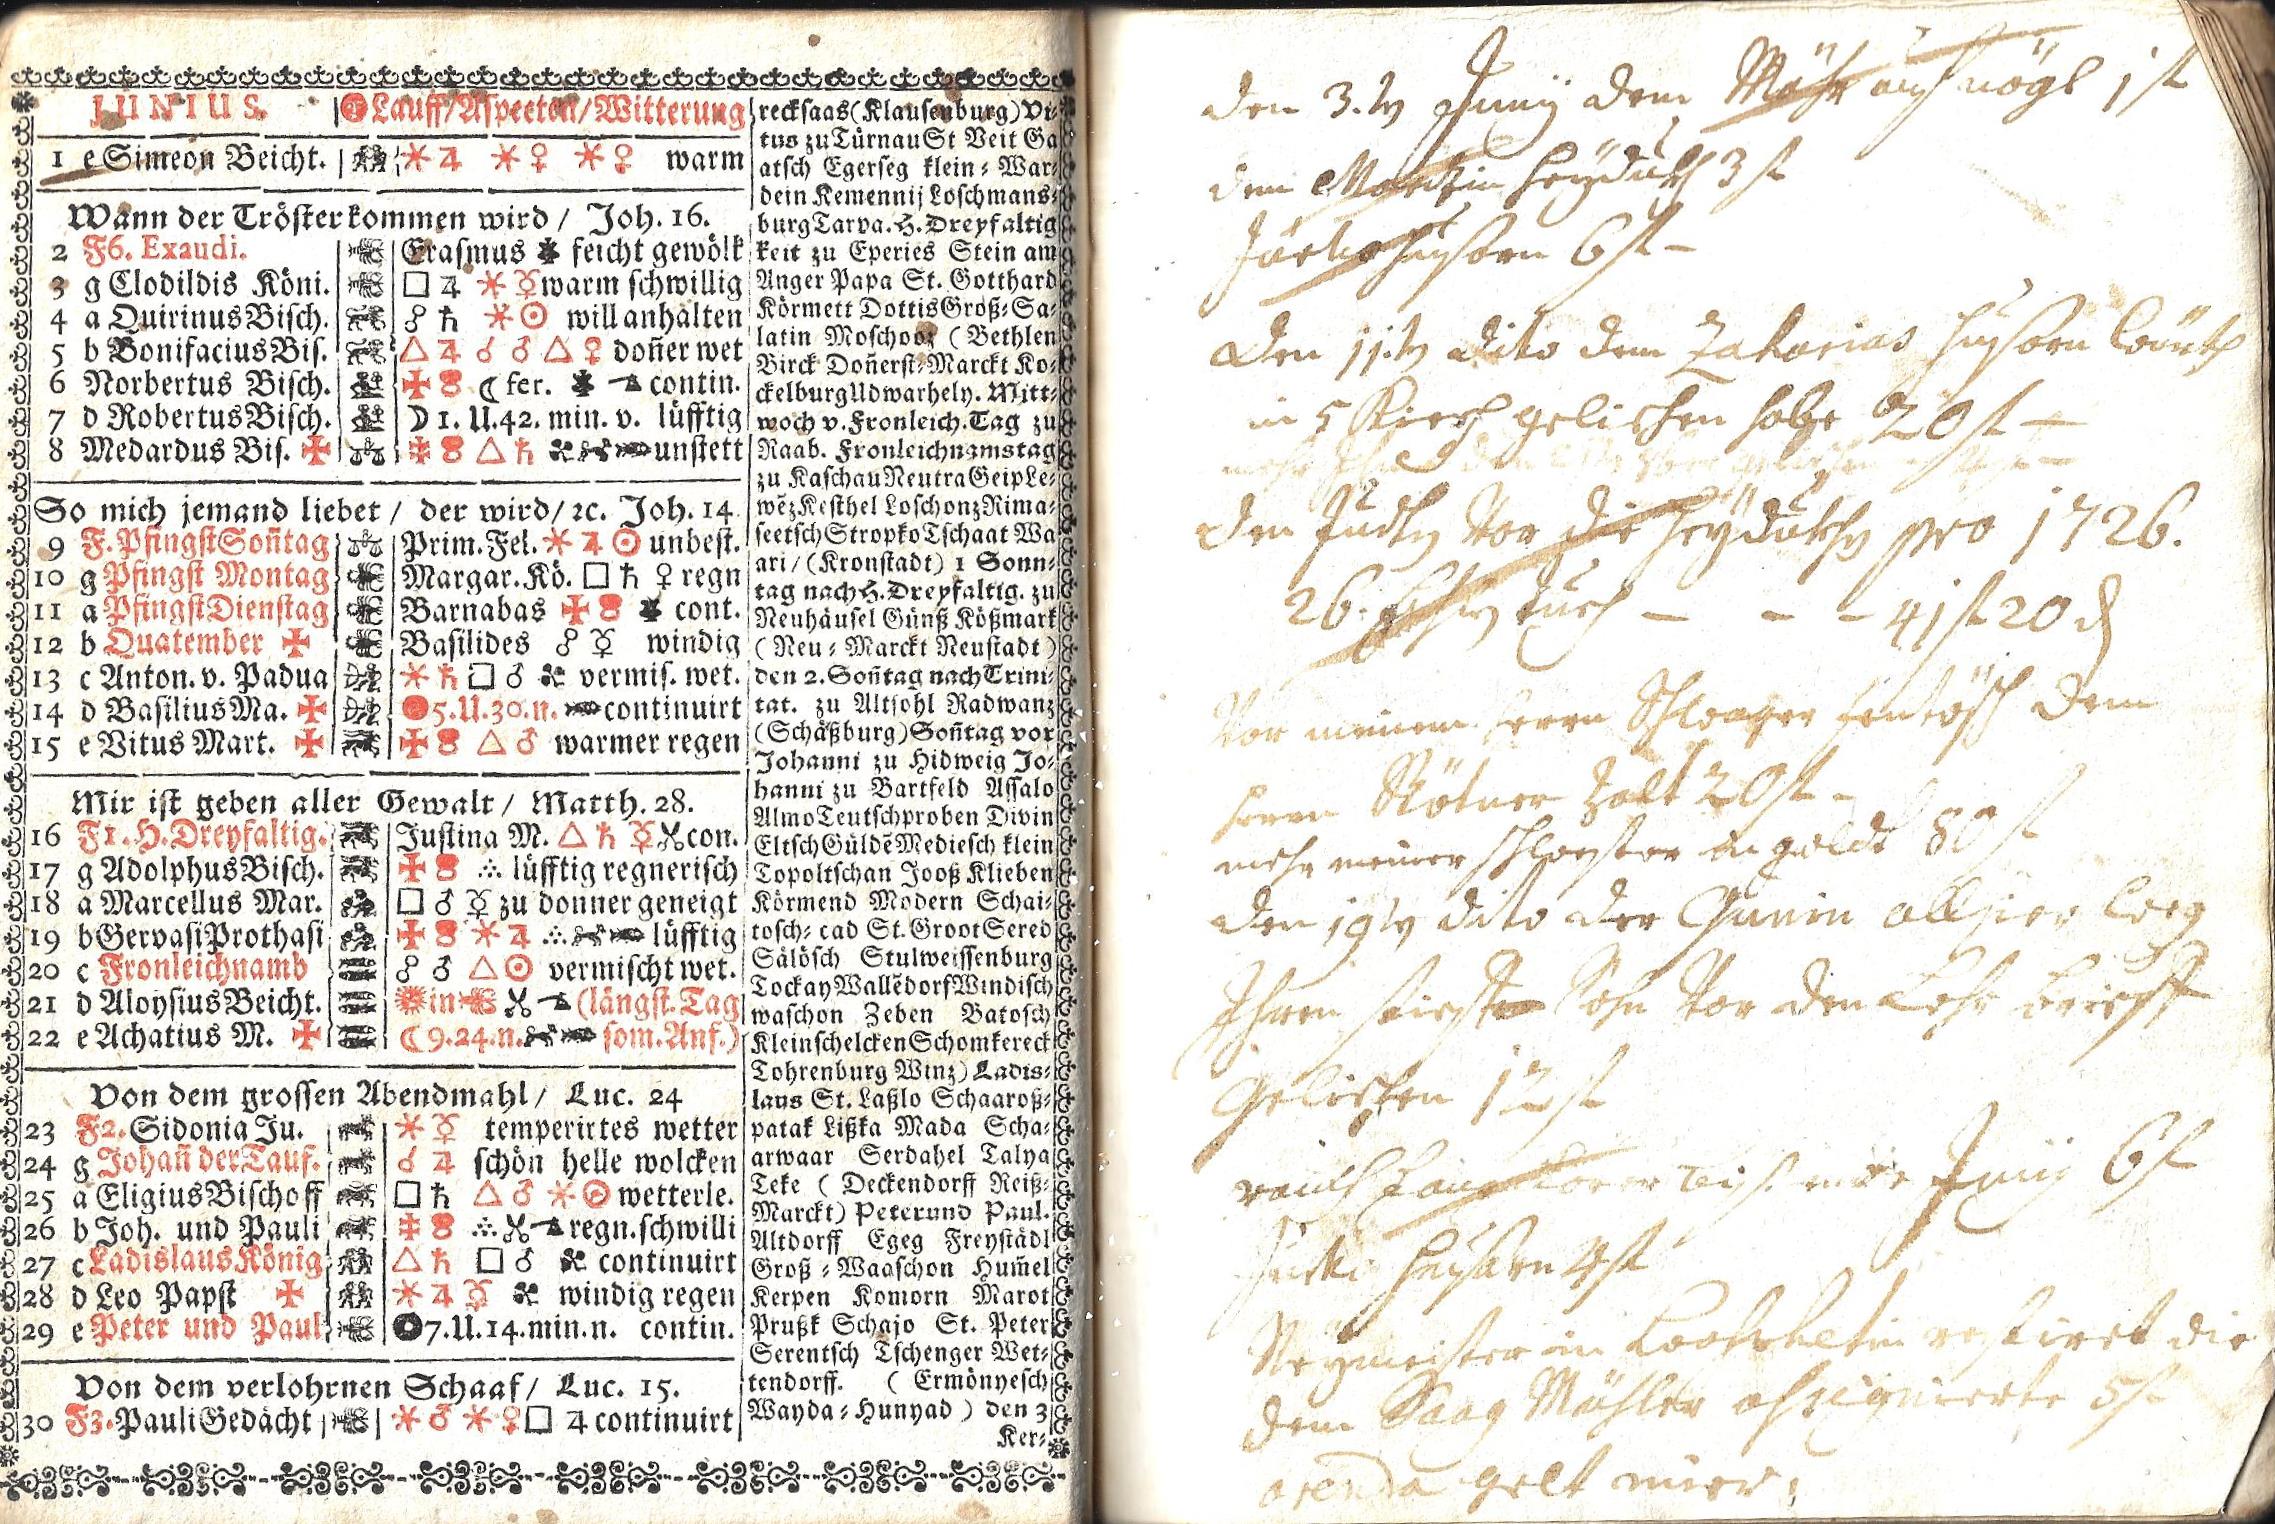 JUNIUS.
Lauff/Aspecten/Witterung
1 e Simeon Beicht. ⚹ ♃ ⚹ ♀ ⚹ ♀ warm
Wann der Tröster kommen wird / Joh. 16.
2 F6. Exaudi. Erasmus feicht gewölk
3 g Clodildis Köni. □ ♃ ⚹ ☿ warm schwillig
4 a Quirinus Bisch. ☍ ♄ ⚹ ☉ will anhalten
5 b Bonifacius Bis. △ ♃ ☌ ♂ △ ♀ doñer wet
6 Norbertus Bisch. ☾ fer. contin.
7 d Robertus Bisch. ☽ 1. U. 42. min. v. lüfftig
8 Medardus Bis. ✠ △ ♄ unstett
So mich jemand liebet / der wird / ꝛc. Joh. 14
9 F. Pfingst Soñtag Prim. Fel. ⚹ ♃ ☉ unbest.
10 g Pfingst Montag Margar. Kö. □ ♄ ♀ regn
11 a Pfingst Dienstag Barnabas cont.
12 b Quatember ✠ Basilides ☍ ☿ windig
13 c Anton. v. Padua ⚹ ♄ □ ♂ vermis. wet.
14 d Basilius Ma. ✠ 5. U. 30. n. continuirt
15 e Vitus Mart. ✠ △ ♂ warmer regen
Mir ist geben aller Gewalt / Matth. 28.
16 F1. H. Dreyfaltig. Justina M. △ ♄ ☿ con.
17 g Adolphus Bisch. lüfftig regnerisch
18 a Marcellus Mar. □ ♂ ☿ zu donner geneigt
19 b Gervasi Prothasi ⚹ ♃ lüfftig
20 c Fronleichnamb ☍ ♂ △ ☉ vermischt wet.
21 d Aloysius Beicht. in (längst. Tag
22 e Achatius M. ✠ ☾ 9. 24. n. som. Anf.)
Von dem grossen Abendmahl / Luc. 24
23 F2. Sidonia Ju. ⚹ ☿ temperirtes wetter
24 g Johañ der Tauf. ☌ ♃ schön helle wolcken
25 a Eligius Bischoff □ ♄ △ ♂ ⚹ ☉ wetterle.
26 b Joh. und Pauli regn. schwilli
27 c Ladislaus König △ ♄ □ ♂ continuirt
28 d Leo Papst ✠ ⚹ ♃ ☿ windig regen
29 e Peter und Paul 7. U. 14. min. n. contin.
Von dem verlohrnen Schaaf / Luc. 15.
30 F3. Pauli Gedächt ⚹ ♂ ⚹ ♀ □ ♃ continuirt
recksaas (Klausenburg) Vi-
tus zu Türnau St Veit Ga
atsch Egerseg klein-War-
dein Kemennij Loschmans-
burg Tarva. H. Dreyfaltig
keit zu Eperies Stein am
Anger Papa St. Gotthard
Körmett Dottis Groß-Sa-
latin Moschooz (Bethlen
Birck Doñerst-Marckt Ko-
ckelburg Udwarhely. Mitt-
woch v. Fronleich. Tag zu
Raab. Fronleichnamstag
zu Kaschau Neutra Geip Le-
wẽz Kesthel Loschonz Rima-
seetsch Stropko Tschaat Wa
ari / (Kronstadt) 1 Sonn-
tag nach H. Dreyfaltig. zu
Neuhäusel Günß Kößmark
(Neu-Marckt Neustadt)
den 2. Soñtag nach Trini-
tat. zu Altsohl Radwanz
(Schäßburg) Soñtag vor
Johanni zu Hidweig Jo-
hanni zu Bartfeld Assalo
Almo Teutschproben Divin
Eltsch Güldẽ Mediesch klein
Topoltschan Jooß Klieben
Körmend Modern Schai-
tosch-cad St. Groot Sered
Sälösch Stulweissenburg
Tockay Wallẽdorf Windisch
waschon Zeben Batosch
Kleinschelcken Schomkereck
Tohrenburg Winz) Ladis-
laus St. Laßlo Schaaroß-
patak Lißka Mada Scha-
arwaar Serdahel Talya
Teke (Deckendorff Reiß-
Marckt) Peter und Paul.
Altdorff Egeg Freystädl
Groß-Waaschon Hum̃el
Kerpen Komorn Marot
Prußk Schajo St. Peter
Serentsch Tschenger Wet-
tendorff. (Ermönyesch
Wayda-Hunyad) den 3
Ker-
den 3.t Junij dem 1 f
dem Martin Heÿdukh 3 f
Husarn 6 f –
den 11.t dito dem Zakarias Husarn
in gelichen 20 f –
den Judn vor die Heÿdukhn pro 1726.
26 Tuch – – – 41 f 20 d
vor meinem Herrn Schwager dem
Herrn zalt 20 f –
mehr meiner Schwester in geldt 80 f
den 19t dito der alhier
Ihren Sohn vor den Lehr brieff
gelichen 12 f
Junij 6 f
Husarn 4 f
in restiret die
dem 5 f
arenda gelt mier